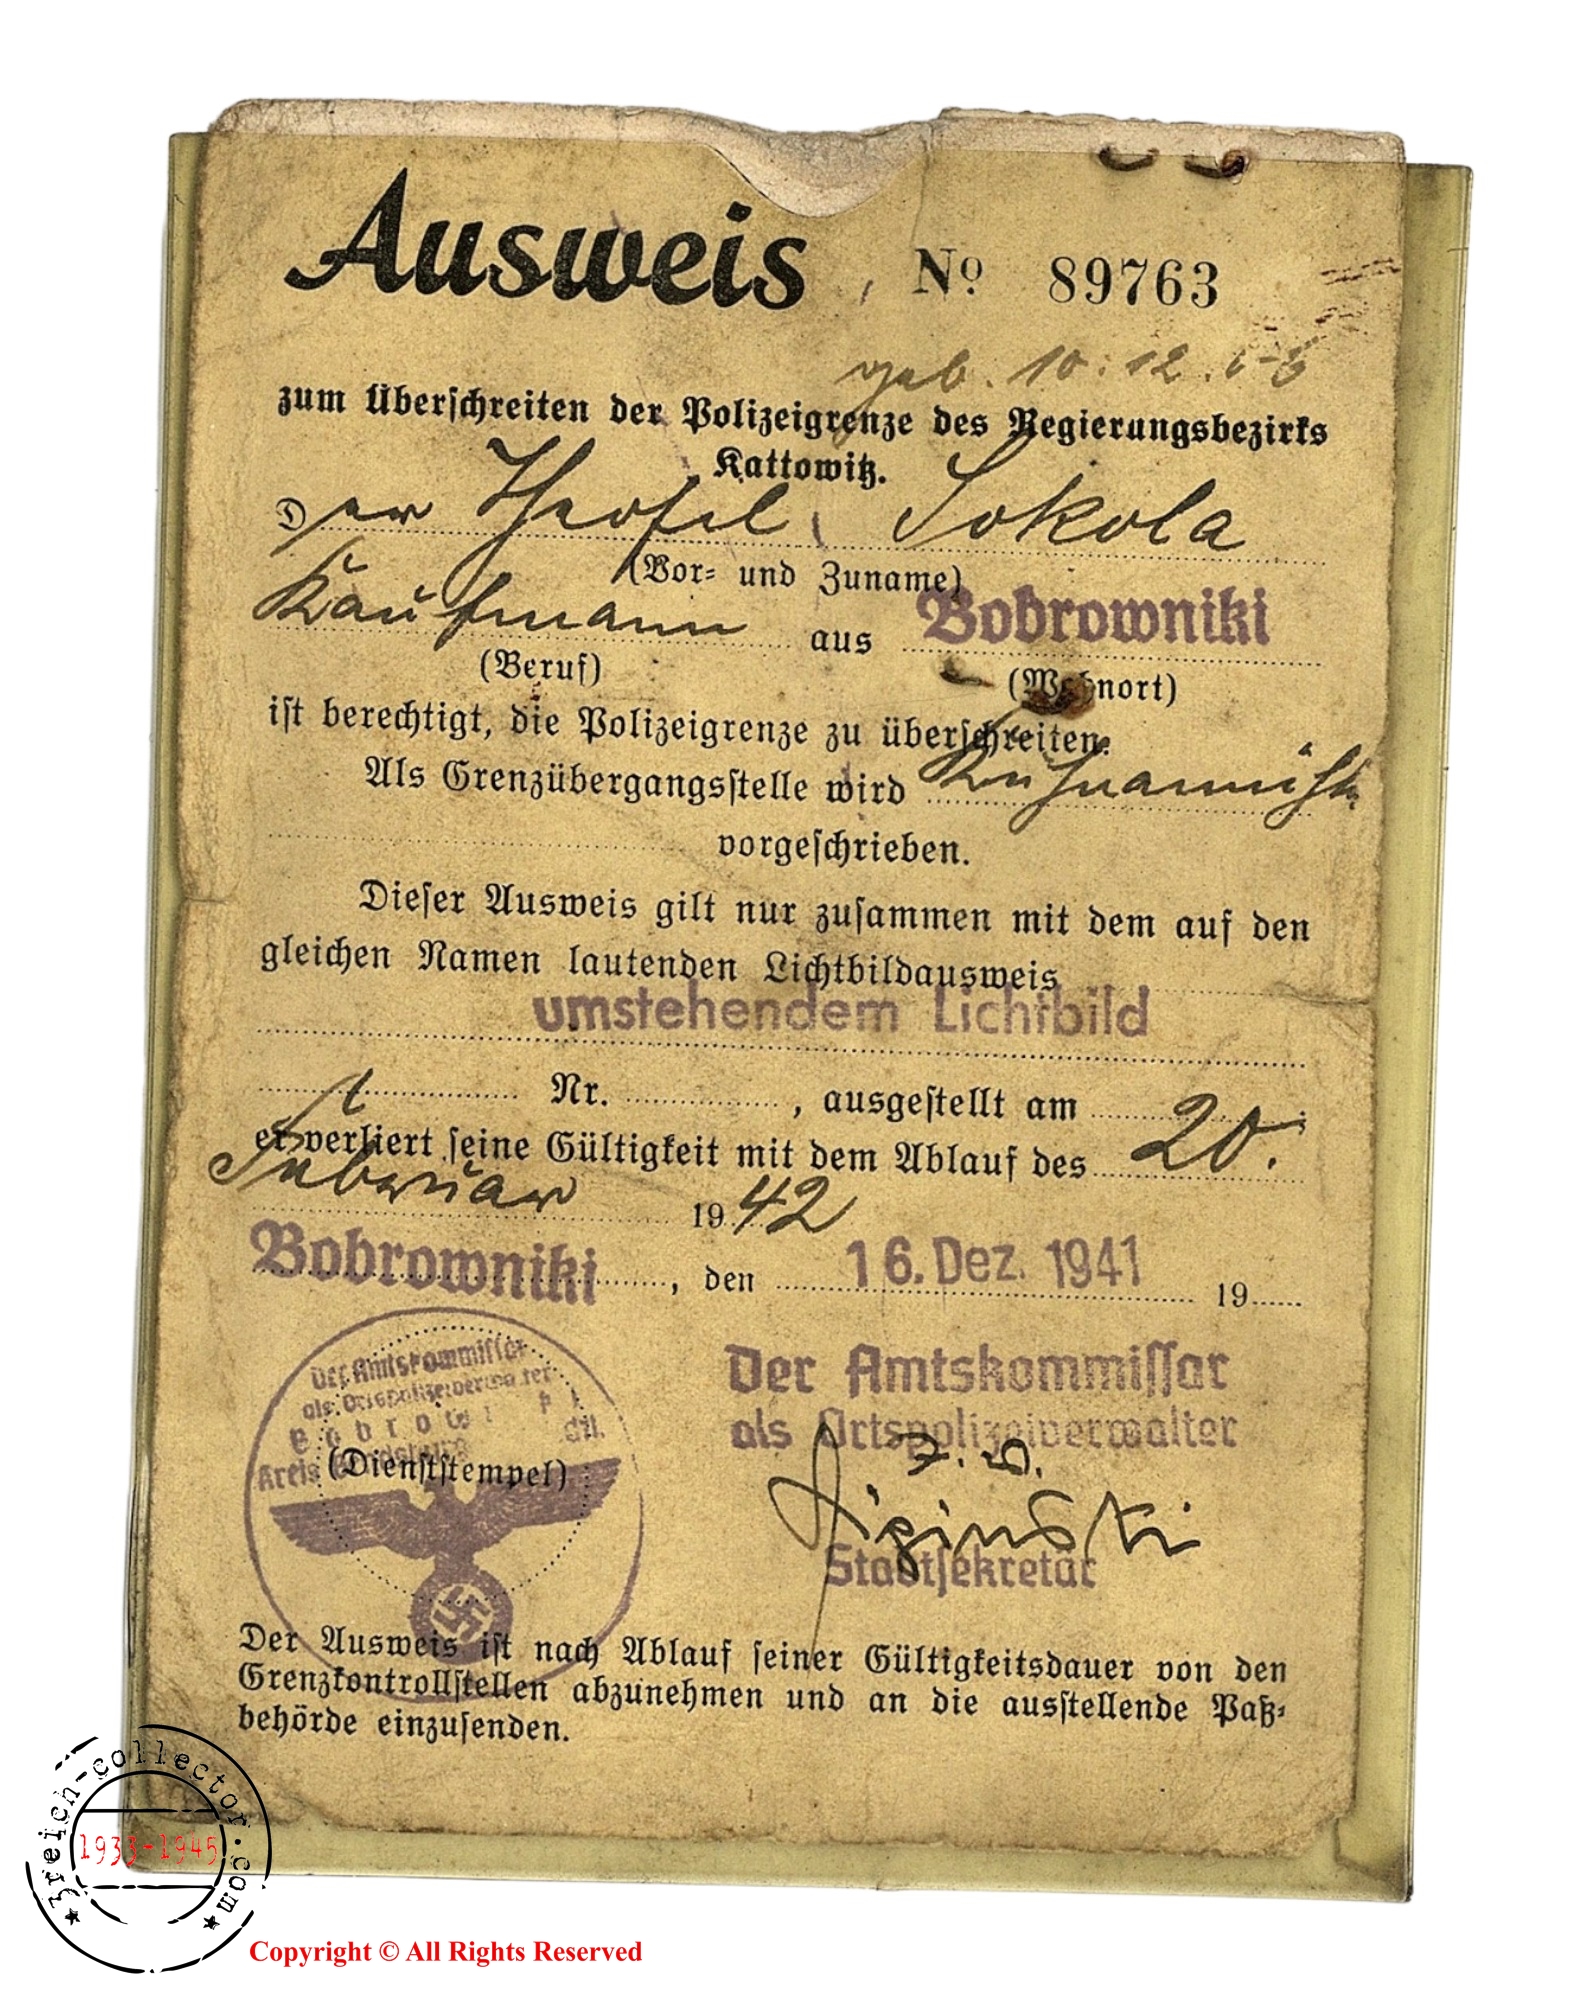 Ausweis No 89763
geb. 10.12.
zum Überschreiten der Polizeigrenze des Regierungsbezirks
Kattowitz.
Der Theofil Sokola
(Vor= und Zuname)
Kaufmann aus Bobrowniki
(Beruf) (Wohnort)
ist berechtigt, die Polizeigrenze zu überschreiten.
Als Grenzübergangsstelle wird
vorgeschrieben.
Dieser Ausweis gilt nur zusammen mit dem auf den
gleichen Namen lautenden Lichtbildausweis
umstehendem Lichtbild
Nr. , ausgestellt am
er verliert seine Gültigkeit mit dem Ablauf des 20.
Februar 1942
Bobrowniki, den 16. Dez. 1941 19
Der Amtskommissar
als Ortspolizeiverwalter
Bobrowniki
Kreis
(Dienststempel)
Der Amtskommissar
als Ortspolizeiverwalter
Stadtsekretär
Der Ausweis ist nach Ablauf seiner Gültigkeitsdauer von den
Grenzkontrollstellen abzunehmen und an die ausstellende Paß=
behörde einzusenden.
3reich-collector.com
1933-1945
Copyright © All Rights Reserved